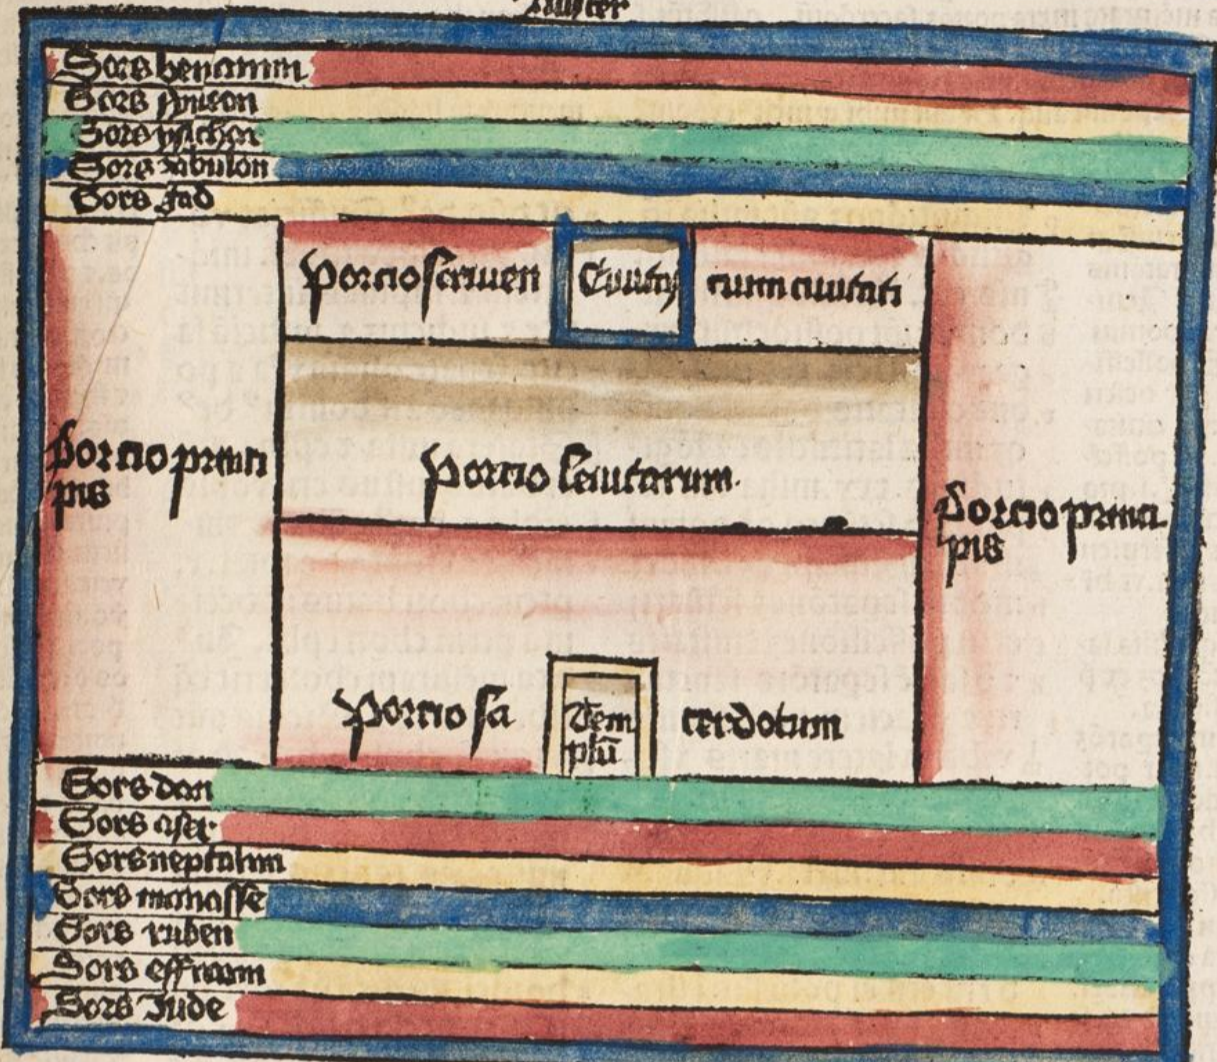 Auster
Sors beniamin
Sors symeon
Sors ysachar
Sors zabulon
Sors Gad
Porcio servien Civitas cium civitati
Porcio princi
pis
Porcio levitarum.
Porcio princi
pis
Porcio sa Tem cerdotum
plū
Sors dan
Sors aser
Sors neptalim
Sors manasse
Sors ruben
Sors effraim
Sors Jude